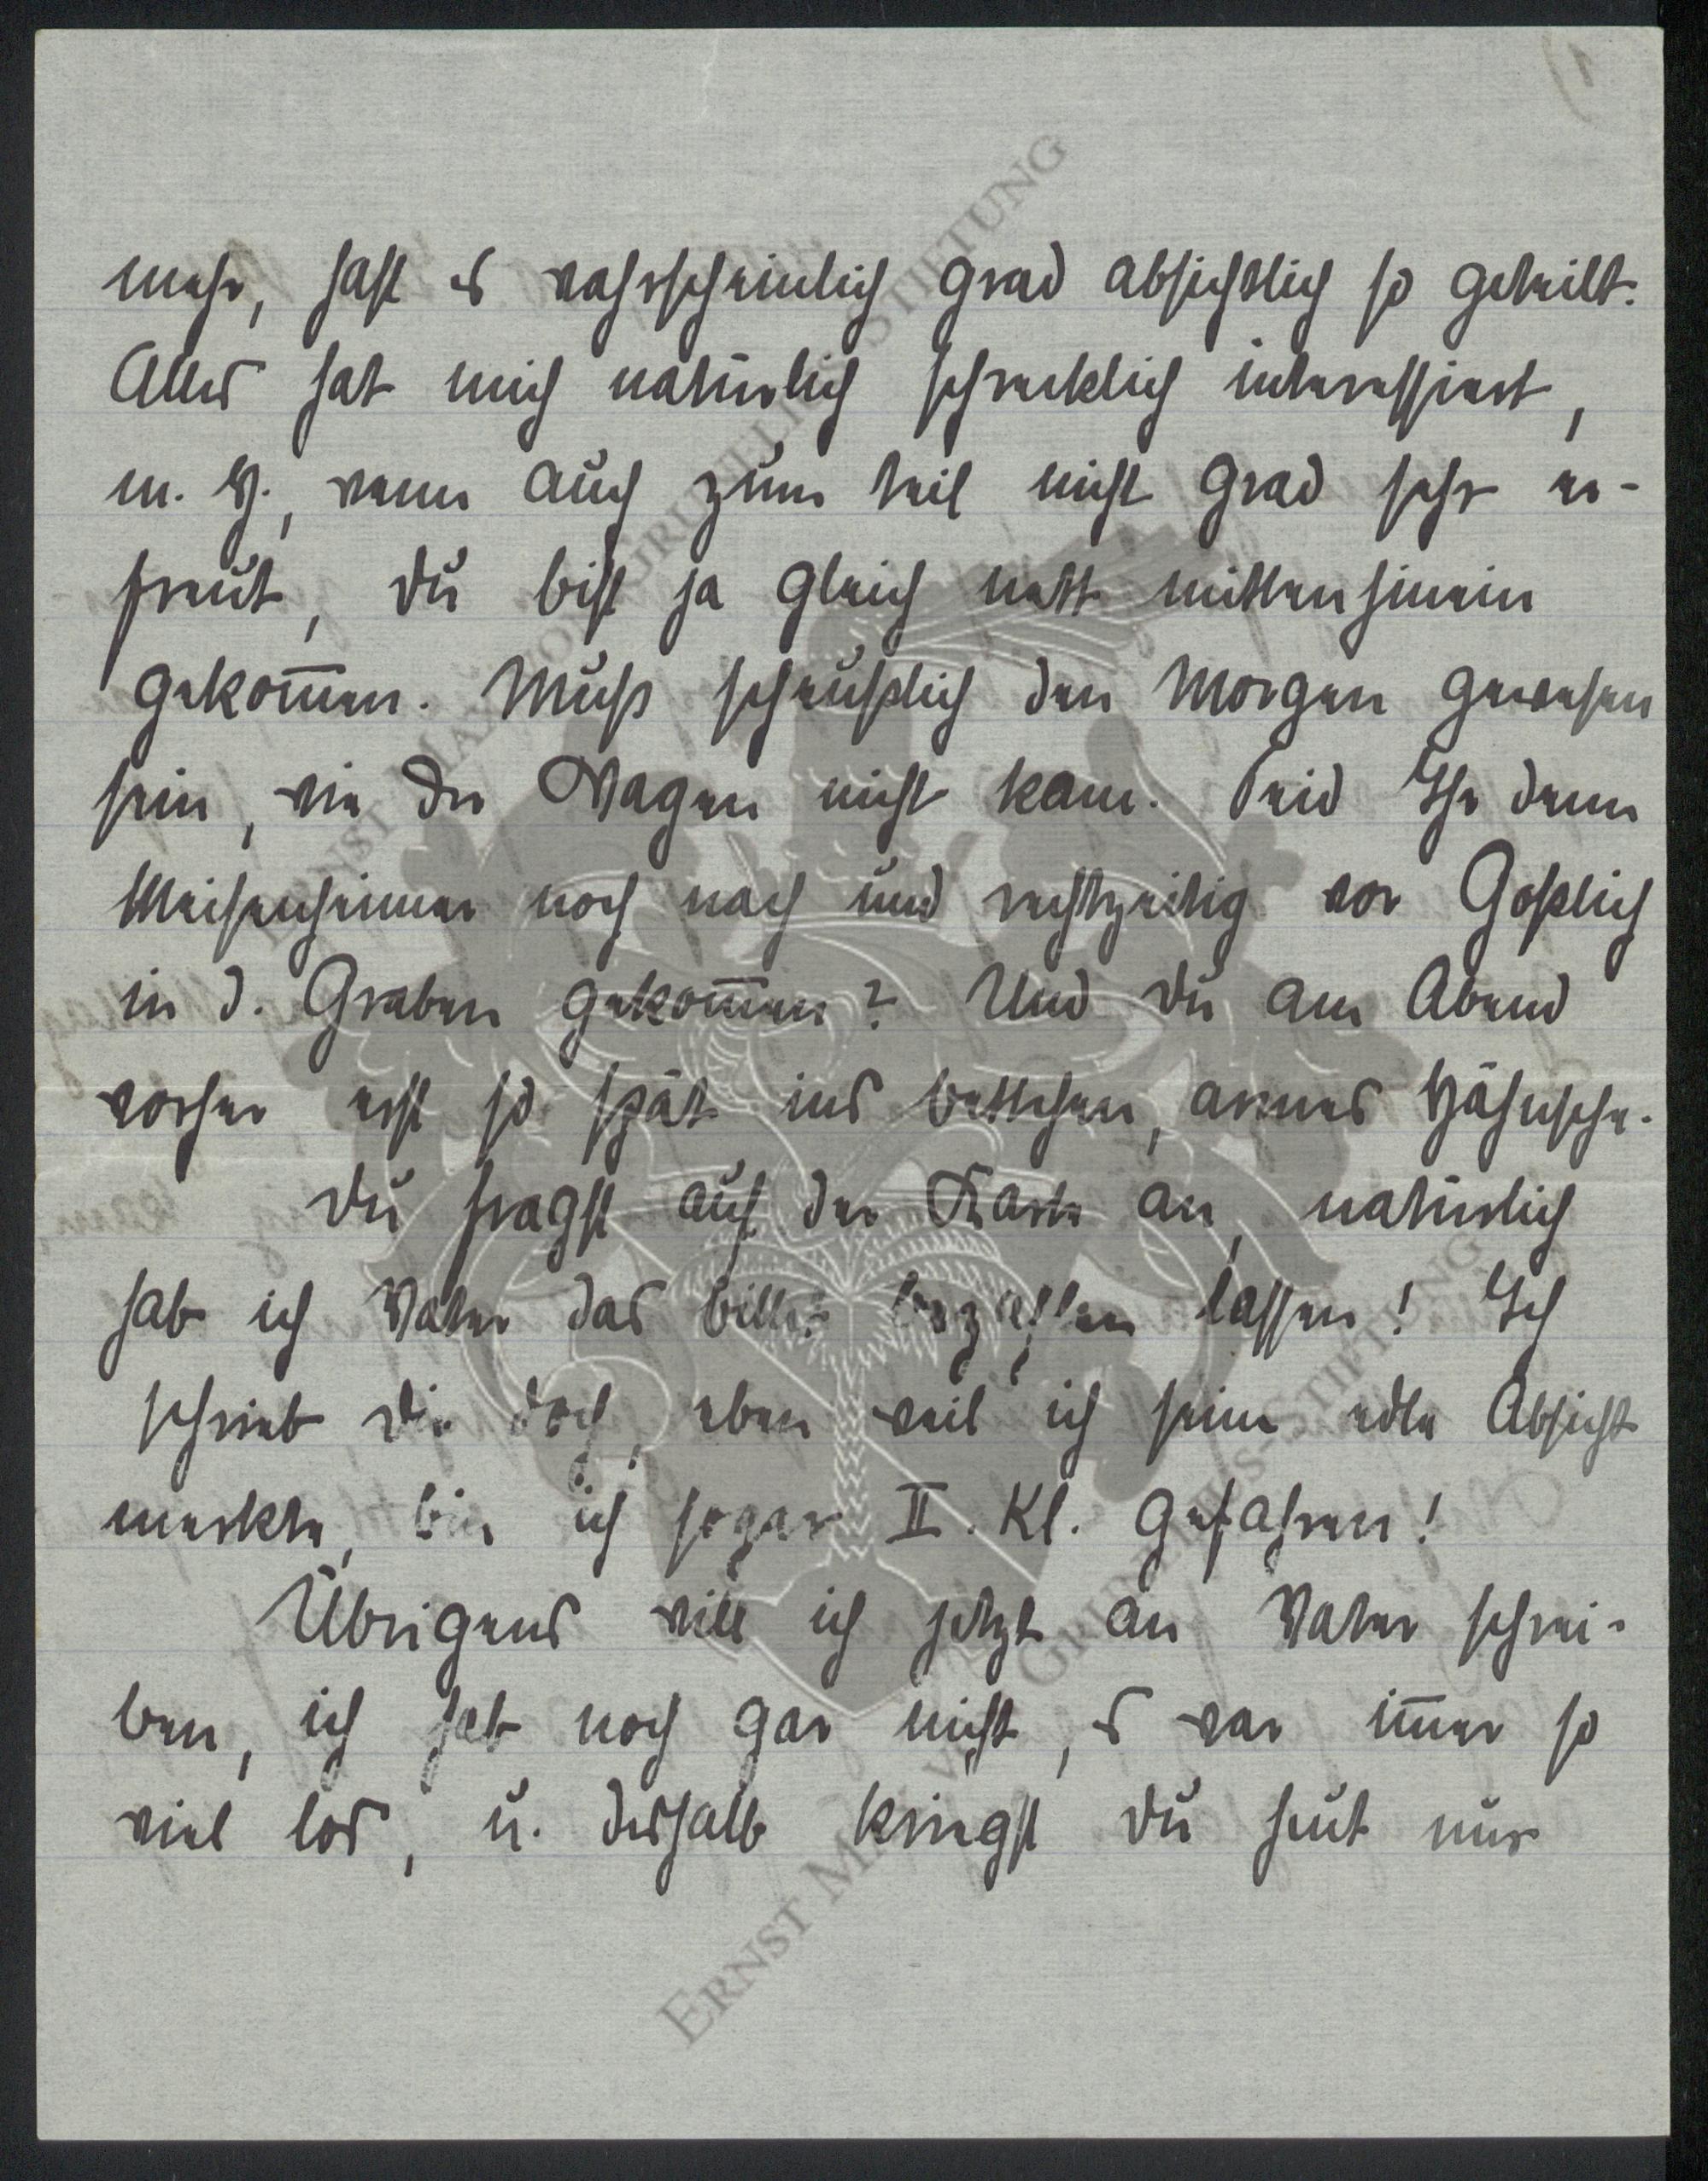 mehr, hast es wahrscheinlich grad absichtlich so geteilt.
Alles hat mich natürlich schrecklich interessiert,
m. H., wenn auch zum teil nicht grad sehr er-
freut, du bist ja gleich nett mittenhinein
gekom̅en. Muss scheusslich den Morgen gewesen
sein, wie der Wagen nicht kam. Seid Ihr denn
Meisenheimer noch nach und rechtzeitig vor Gosslich
in d. Graben gekom̅en? Und du am Abend
vorher erst so spät ins bettchen, armes Hähnsche.
du fragst auf der Karte an, natürlich
hab ich Vater das billet bezahlen lassen! Ich
schrieb dir doch, eben weil ich seine edle Absicht
merkte, bin ich sogar II. Kl. gefahren!
Übrigens will ich jetzt an Vater schrei-
ben, ich hab noch gar nicht, es war im̅er so
viel los, u. deshalb kriegst du heut nur
ERNST MAX VON GRUNELIUS-STIFTUNG
ERNST MAX VON GRUNELIUS-STIFTUNG